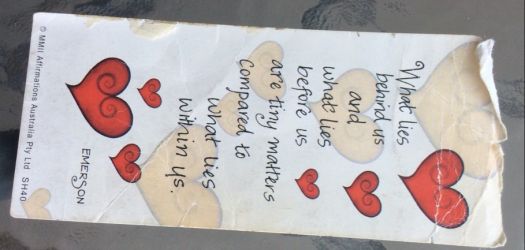 What lies
behind us
and
what lies
before us
are tiny matters
compared to
what lies
within us.
EMERSON
© MMII Affirmations Australia Pty Ltd SH40